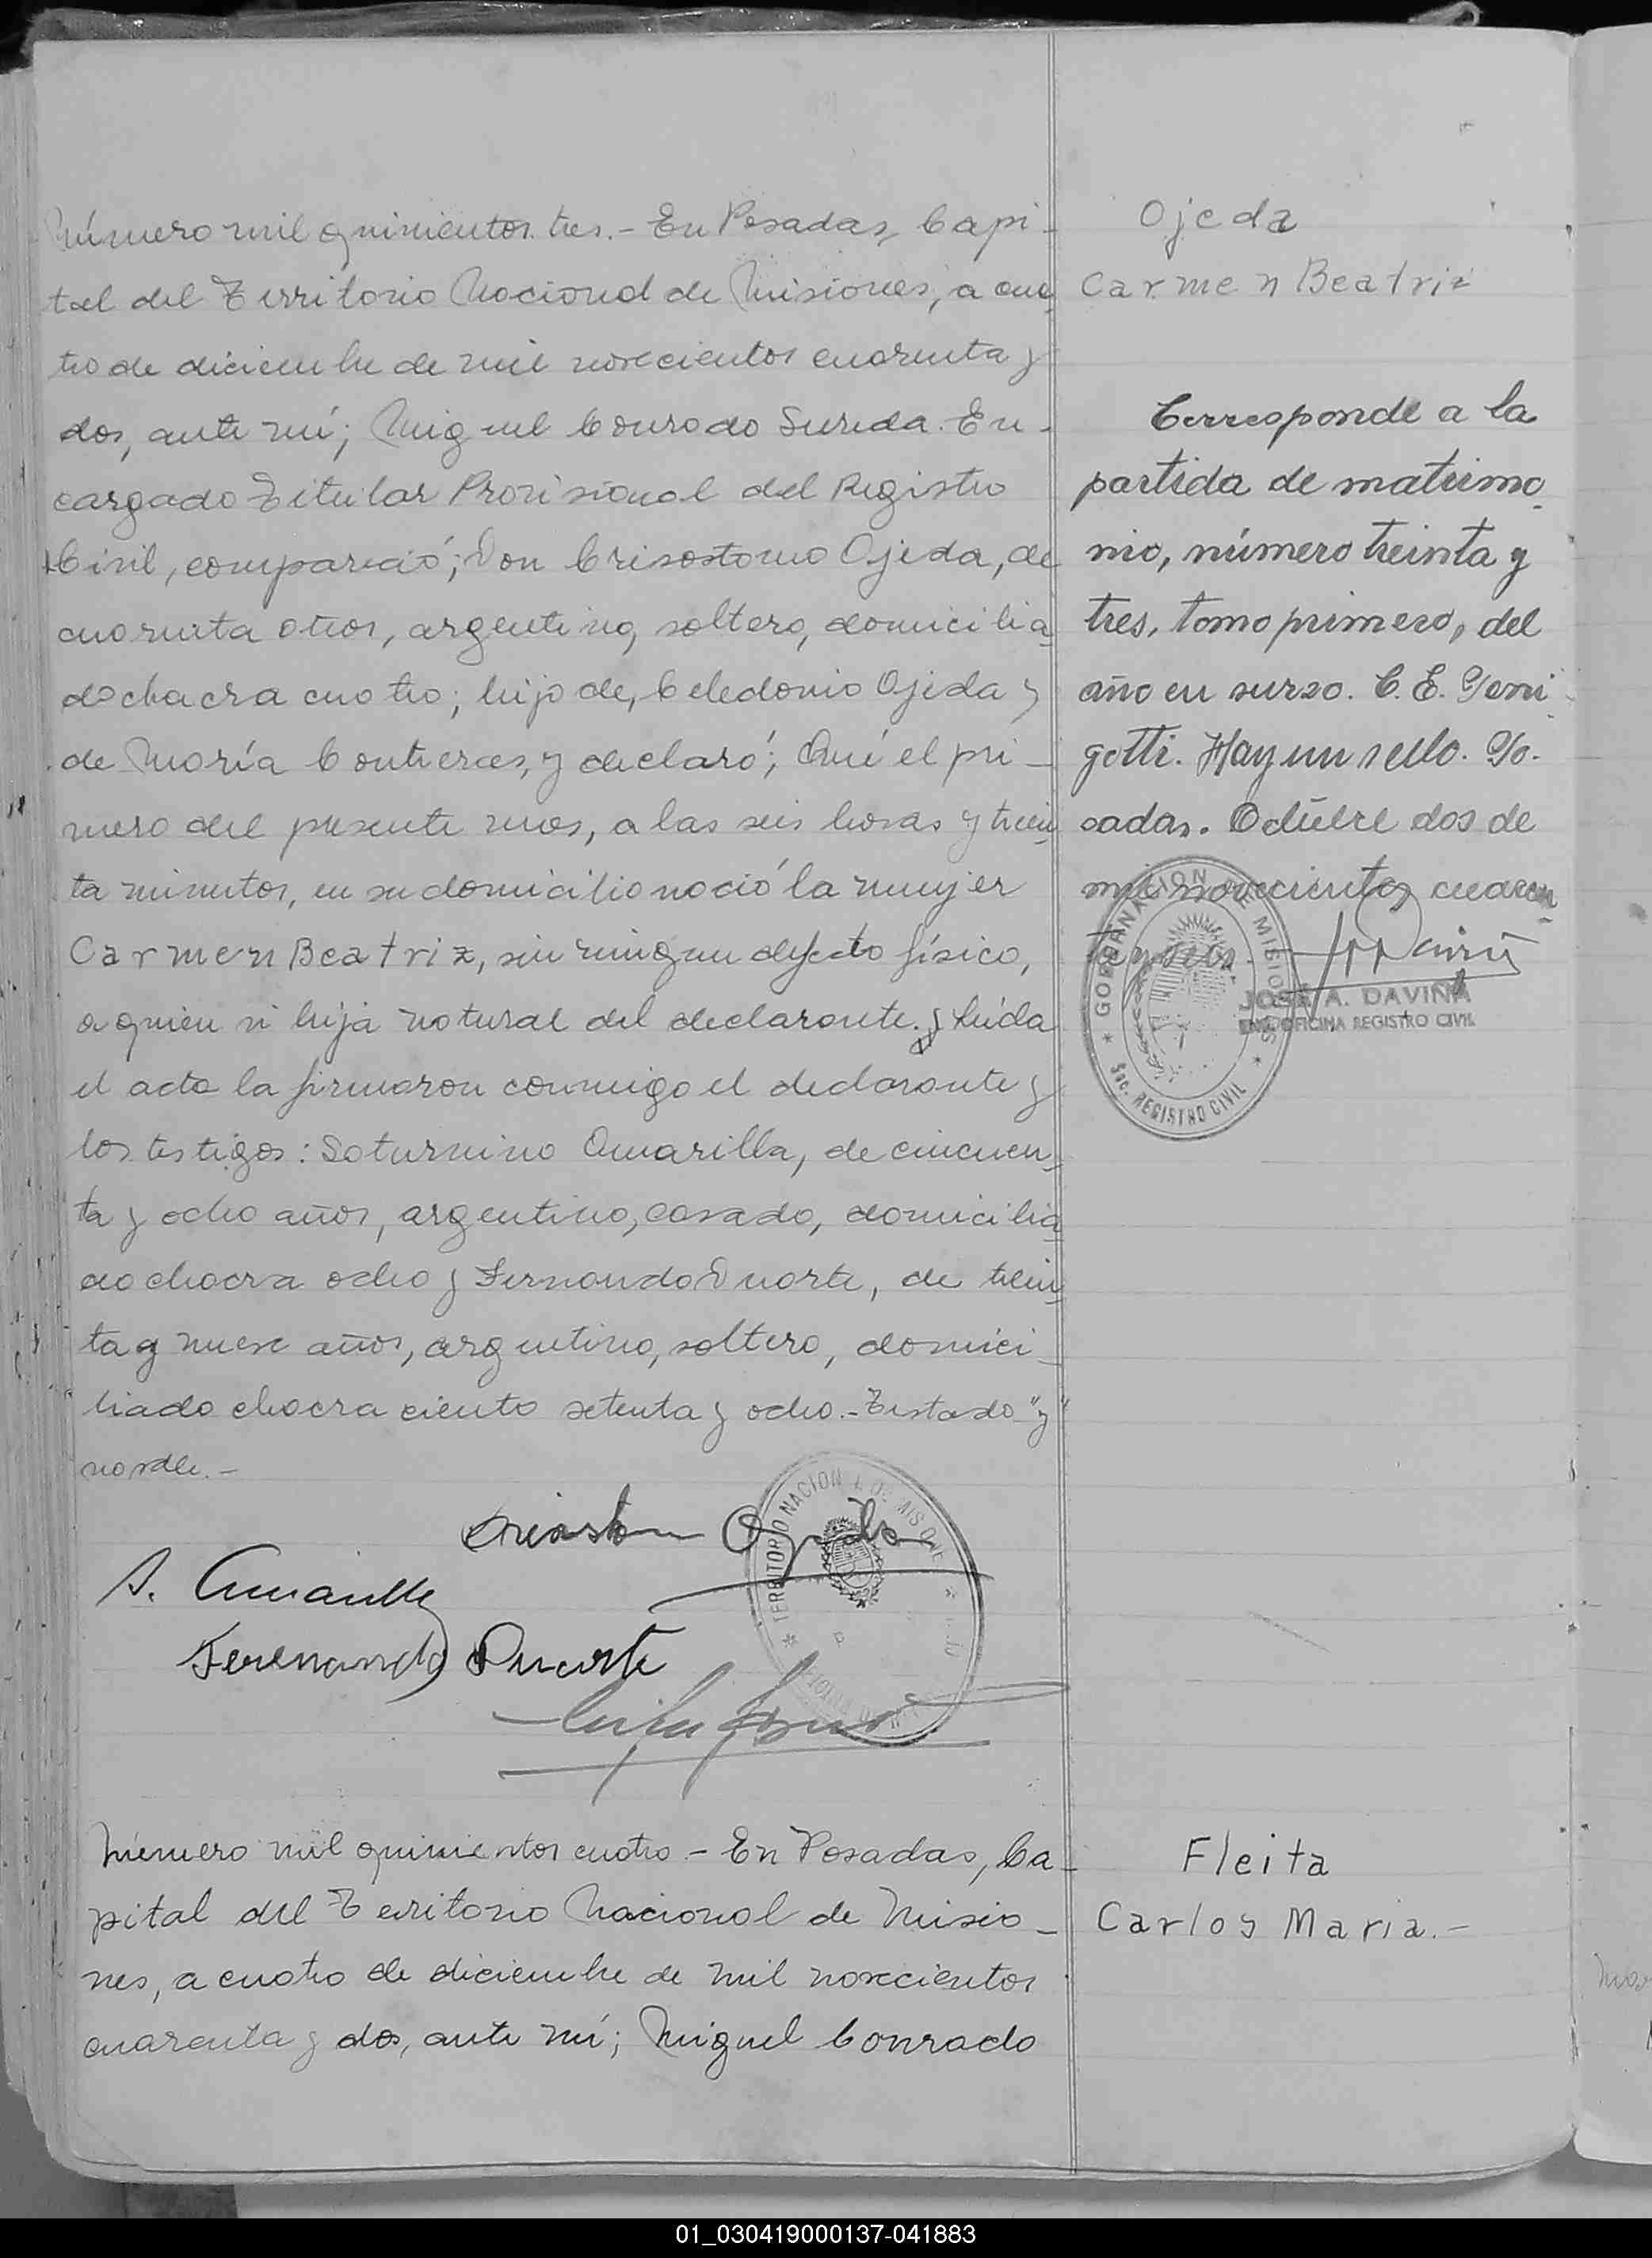 Número mil quinientos tres.- En Posadas, Capi-
tal del Territorio Nacional de Misiones, a cua
tro de diciembre de mil novecientos cuarenta y
dos, ante mí; Miguel Conrado Sureda. En-
cargado Titular Provisional del Registro
Civil, compareció; Don Crisostomo Ojeda, de
cuarenta años, argentino, soltero, domicilia
do chacra cuatro; hijo de, Celedonio Ojeda y
de María Contreras, y declaró; Que el pri-
mero del presente mes, a las seis horas y trein
ta minutos, en su domicilio nació la mujer
Carmen Beatriz, sin ningun defecto físico,
a quien vi hija natural del declarante. y Leída
el acta la firmaron conmigo el declarante y
los testigos: Saturnino Amarilla, de cincuen
ta y ocho años, argentino, casado, domicilia
do chacra ocho y Fernando Duarte, de trein
ta y nueve años, argentino, soltero, domici-
liado chacra ciento setenta y ocho.- Testado "y"
no vale.-
Ojeda
S. Amarilla
Duarte
TERRITORIO NACION
Número mil quinientos cuatro - En Posadas, Ca-
pital del Territorio Nacional de Misio-
nes, a cuatro de diciembre de mil novecientos
cuarenta y dos, ante mí; Miguel Conrado
Ojeda
Carmen Beatriz
Corresponde a la
partida de matrimo
nio, número treinta y
tres, tomo primero, del
año en curso. C. E.
Hay un sello. Po-
sadas. Octubre dos de
mil novecientos cuaren
ta y seis.
GOBERNACION DE MISIONES
SEC. REGISTRO CIVIL
JOSÉ A. DAVIÑA
ENC. OFICINA REGISTRO CIVIL
Fleita
Carlos Maria.-
01_030419000137-041883